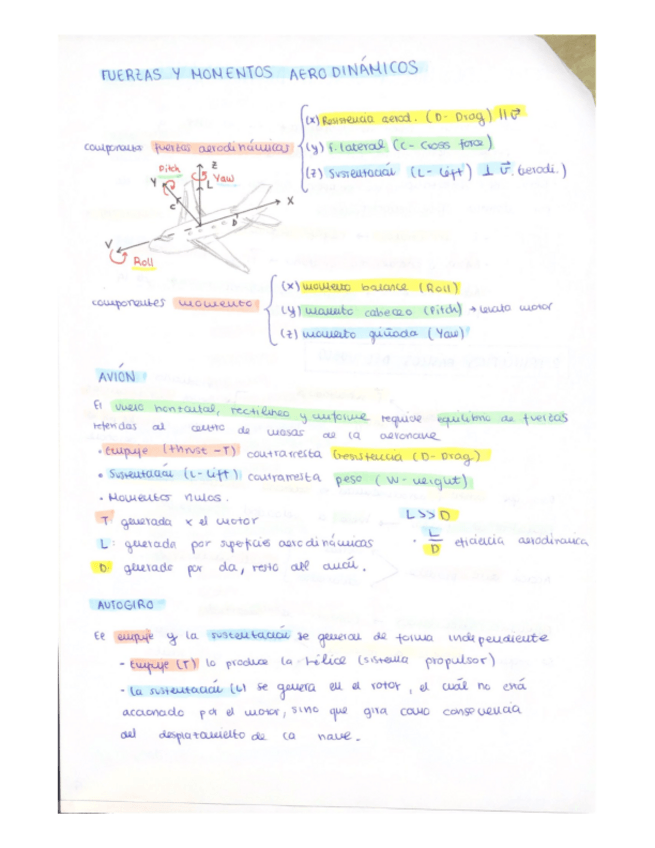 FUERZAS Y MOMENTOS AERODINÁMICOS
componentes fuerzas aerodinámicas
(x) Resistencia aerod. (D- Drag) || v⃗
(y) f. lateral (C- Cross force)
(z) Sustentación (L- Lift) ⊥ v⃗. (aerodi.)
Pitch
Z
Yaw
Y
L
X
C
D
V
Roll
componentes momento
(x) momento balance (Roll)
(y) momento cabeceo (Pitch) → morro
(z) momento guiñada (Yaw)
AVIÓN
El vuelo horizontal, rectilíneo y uniforme requiere equilibrio de fuerzas
referidas al centro de masas de la aeronave
• Empuje (thrust -T) contrarresta Resistencia (D- Drag)
• Sustentación (L- Lift) contrarresta peso (W- weight)
• Momentos nulos.
T generada x el motor
L>>D
L: generada por supeficies aerodinámicas
• L/D eficiencia aerodinámica
D: generado por ala, resto del avión.
AUTOGIRO
El empuje y la sustentación se generan de forma independiente
- Empuje (T) lo produce la hélice (sistema propulsor)
- La sustentación (L) se genera en el rotor, el cuál no está
accionado por el motor, sino que gira como consecuencia
del desplazamiento de la nave.